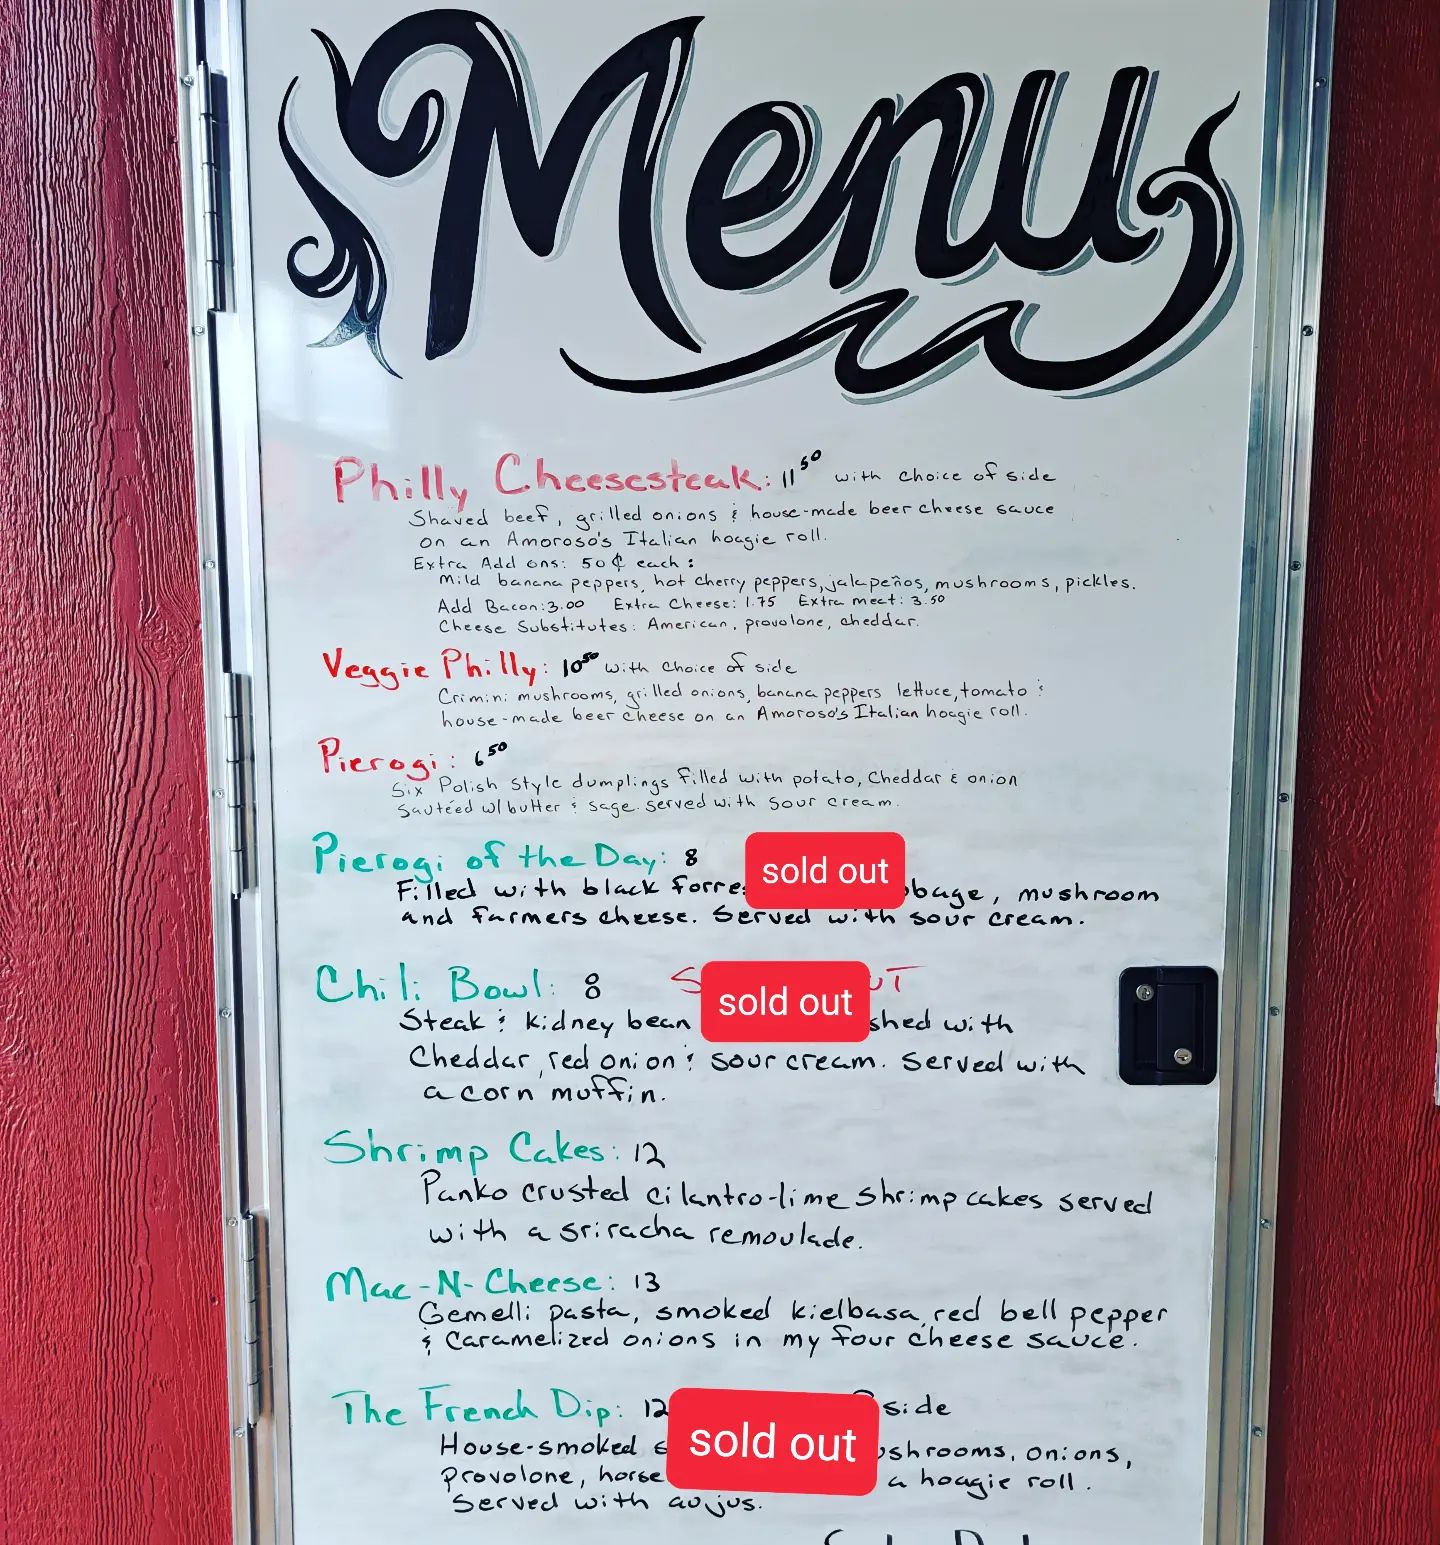 Menu
Philly Cheesesteak: 11⁵⁰ with choice of side
Shaved beef, grilled onions & house-made beer cheese sauce
on an Amoroso's Italian hoagie roll.
Extra Add ons: 50¢ each:
Mild banana peppers, hot cherry peppers, jalapeños, mushrooms, pickles.
Add Bacon: 3.00 Extra Cheese: 1.75 Extra meat: 3.50
Cheese Substitutes: American, provolone, cheddar.
Veggie Philly: 10⁵⁰ with choice of side
Crimini mushrooms, grilled onions, banana peppers lettuce, tomato &
house-made beer cheese on an Amoroso's Italian hoagie roll.
Pierogi: 6⁵⁰
Six Polish Style dumplings filled with potato, Cheddar & onion
Sautéed w/butter & sage. served with Sour cream.
Pierogi of the Day: 8 sold out
Filled with black mushroom
and farmers cheese. Served with sour cream.
Chili Bowl: 8 sold out
Steak & kidney bean with
Cheddar, red onion & sour cream. Served with
a corn muffin.
Shrimp Cakes: 12
Panko crusted cilantro-lime shrimp cakes served
with a sriracha remoulade.
Mac-N-Cheese: 13
Gemelli pasta, smoked kielbasa, red bell pepper
& Caramelized onions in my four cheese sauce.
The French Dip: 12 sold out side
House-smoked onions,
provolone, a hoagie roll.
Served with aujus.